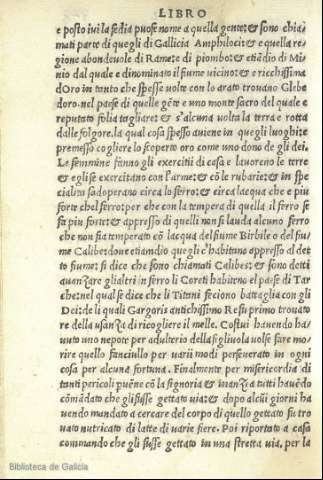 LIBRO
e posto iui la sedia puose nome a quella gente: & sono chia
mati parte di quegli di Gallicia Amphilocii: & e quella re
gione abondeuole di Rame: e di piombo: & etiādio di Mi
nio dal quale e dinominato il fiume uicino: & e ricchissima
d'Oro in tanto che spesse uolte con lo arato trouano Glebe
doro. nel paese di quelle gēte e uno monte sacro del quale e
reputato folia tagliare: & s'alcuna uolta la terra e rotta
dalle folgore. la qual cosa spesso auiene in que gli luoghi: e
premesso cogliere lo scoperto oro come uno dono de gli dei.
Le femmine fanno gli exercitii di casa e lauoreno le terre
& egli se exercitano con l'arme: & cō le rubarie: & in spe
cialita sadoperano circa lo ferro: & circa lacqua che e piu
forte chel ferro: per che con la tempera di quella il ferro se
fa piu forte: & appresso di quelli non si lauda alcuno ferro
che non sia temperato cō lacqua del fiume Birbile o del fiu
me Calibe: done etiamdio que gli c'habitano appresso al det
to fiume: si dice che sono chiamati Calibes: & sono detti
auanzare gli altri in ferro li Cereti habiteno el paese di Tar
che: nel qual se dice che li Titani feciono battaglia con gli
Dei: de li quali Gargoris antichissimo Re fu primo trouato
re della usanza di ricogliere il melle. Costui hauendo ha
uuto uno nepote per adulterio della figliuola uolse fare mo
rire quello fanciullo per uarii modi perseuerato in ogni
cosa per alcuna fortuna. Finalmente per misericordia di
tanti pericoli puēne cō la signoria & inanza tutti hauēdo
cōmādato che gli fusse gettato uia: & dopo alcūi giorni ha
uendo mandato a cercare del corpo di quello gettato fu tro
uato nutricato di latte di uarie fiere. Poi riportato a casa
commando che gli fusse gettato in una stretta uia, per la
Biblioteca de Galicia